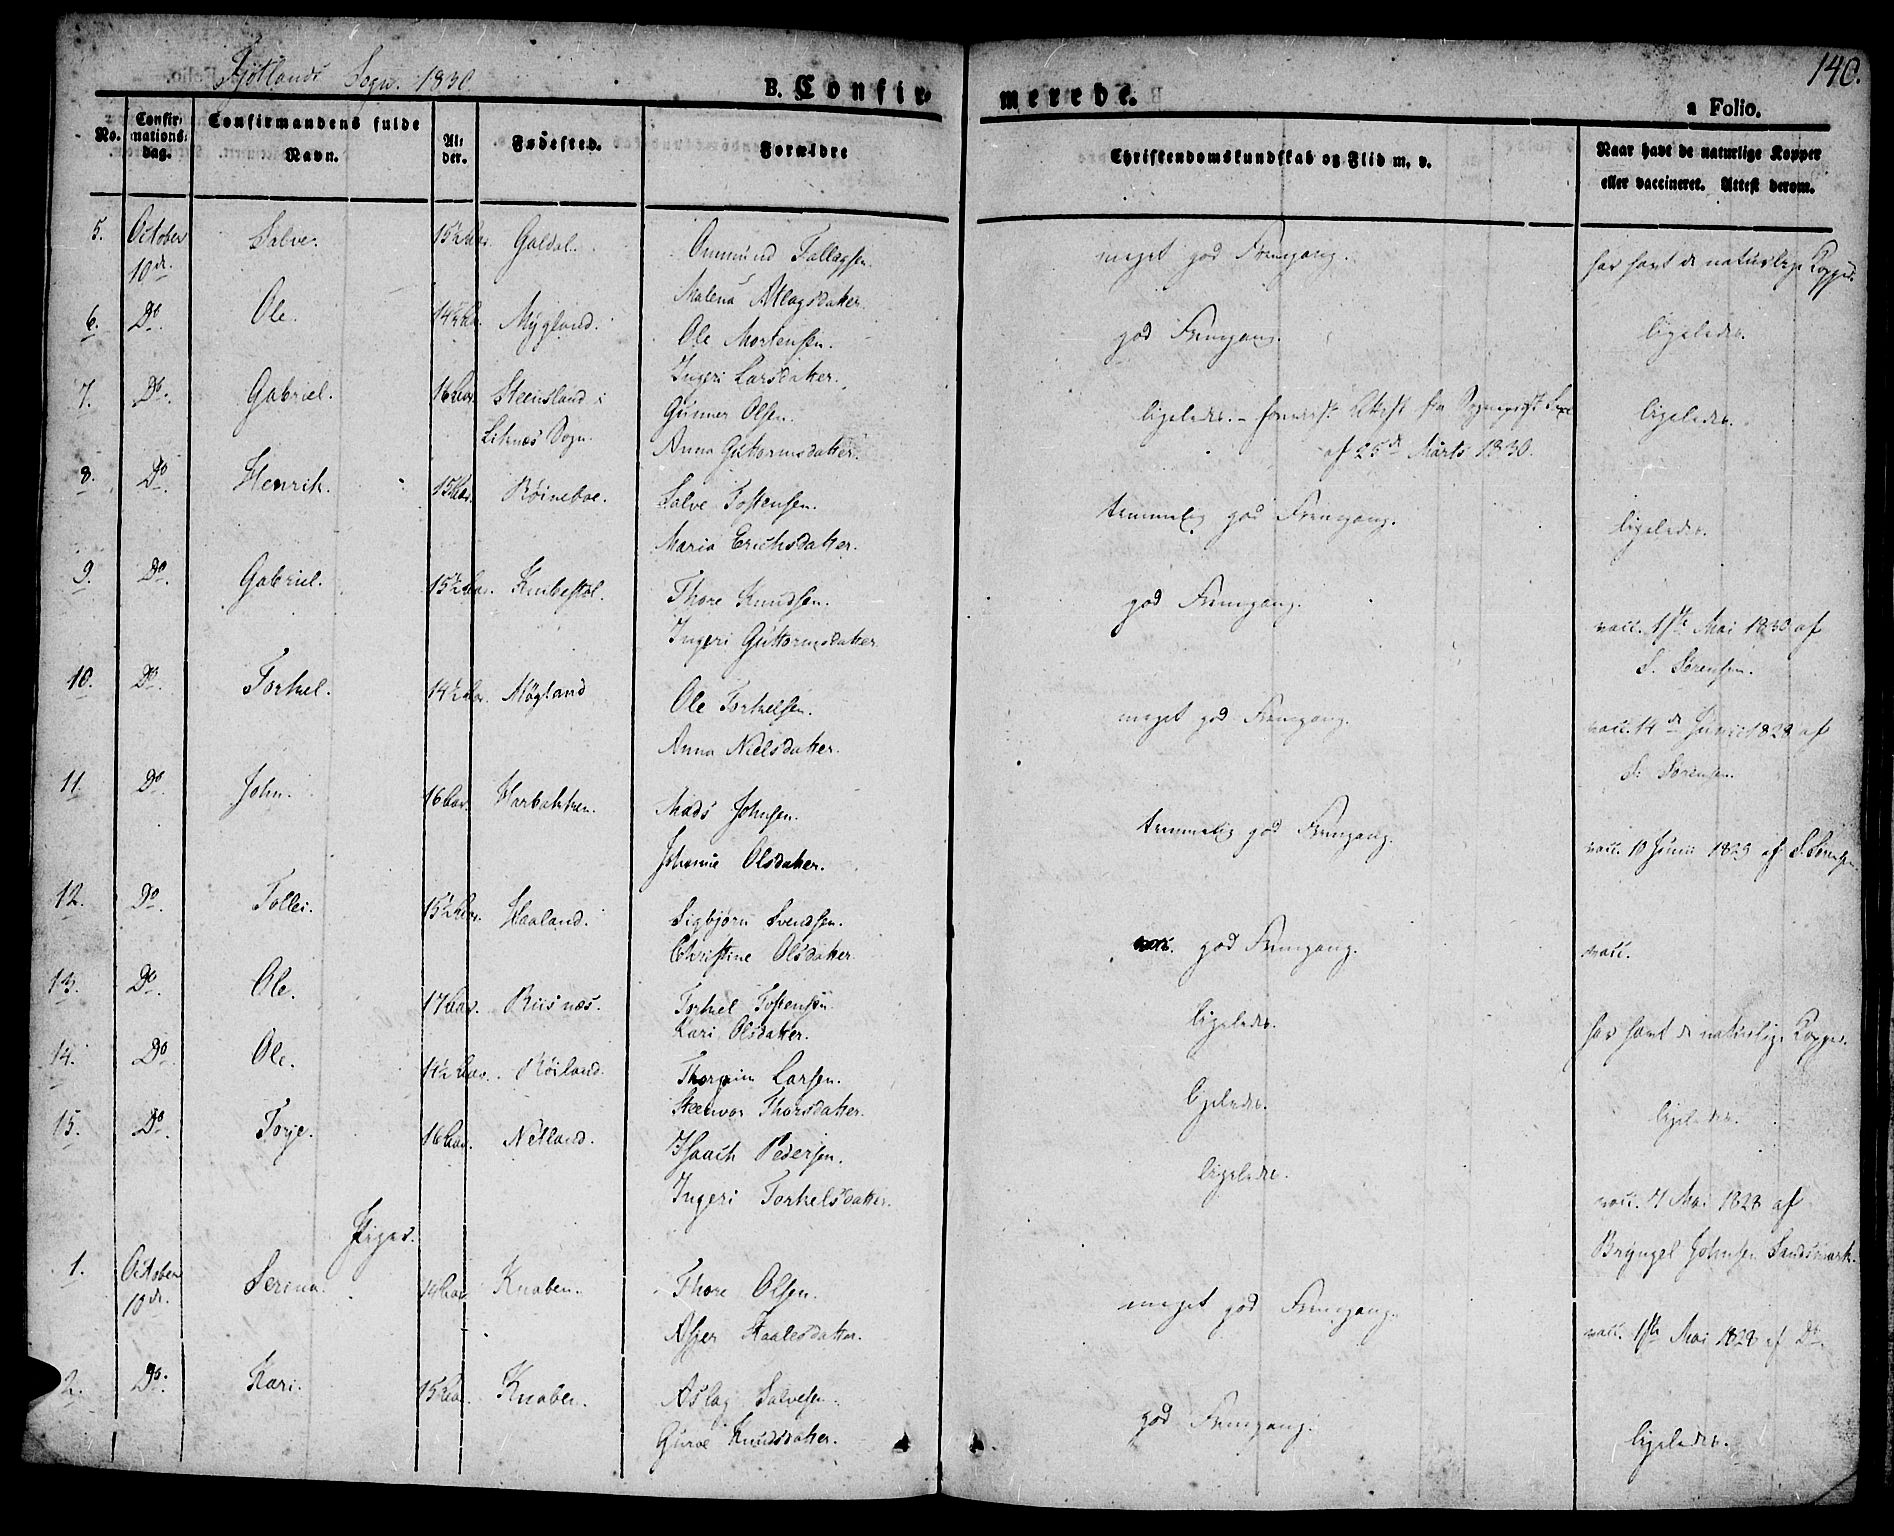 Fjotlands Sogn. 1830
B. Confirmerede.
140.
a Folio.
No.
Confirmations-dag.
Confirmandens fulde Navn.
Alder.
Fødested.
Forældre
Christendomskundskab og Flid m. v.
Naar havt de naturlige Kopper eller vaccineret. Attest derom.
5. October 10de. Salve. 15½ Aar. Galdal. Ommund Tallagsen. meget god Fremgang. har havt de naturlige Kopper.
Malena Atlagsdatter.
6. Do. Ole. 14½ Aar. Mygland. Ole Mortensen. god Fremgang. ligeledes.
Ingeri Larsdatter.
7. Do. Gabriel. 16 Aar. Steensland i Gunner Olsen. ligeledes. - Attest fra ligeledes.
Litnæs Sogn. Anna Guttormsdatter. af 25de Marts 1830.
8. Do. Henrik. 15 Aar. Røineboe. Salve Tostensen. temmelig god Fremgang. ligeledes.
Maria Erichsdatter.
9. Do. Gabriel. 15½ Aar. Knibestøl. Thore Knudsen. god Fremgang. vacc. 1ste Mai 1830 af
Ingeri Guttormsdatter S. Sørensen.
10. Do. Torkel. 14½ Aar. Møgland Ole Torkelsen. meget god Fremgang. vacc. 14de Junii 1828 af
Anna Nielsdatter. S. Sørensen.
11. Do. John. 16 Aar. Harbakken. Mads Johnsen. temmelig god Fremgang. vacc. 10 Junii 1829 af S. Sørensen
Johanne Olsdatter.
12. Do. Tollei. 15½ Aar. Haaland. Sigbjørn Svendsen. god Fremgang. vacc.
Christine Olsdatter
13. Do. Ole. 17 Aar. Riisnæs. Torkel Tostensen ligeledes. har havt de naturlige Kopper.
Kari Olsdatter.
14. Do. Ole. 14½ Aar. Røiland. Thorgrim Larsen. ligeledes. ligeledes.
Steenvor Thorsdatter.
15. Do. Torje. 16 Aar. Netland. Isaach Pedersen. ligeledes. vacc. 7 Mai 1828 af
Ingeri Torkelsdatter. Bryngel Johnsen Sandsmark.
Piger.
1. October 10de. Serina. 14 Aar Knaben. Thore Olsen. meget god Fremgang. vacc. 1ste Mai 1828 af Do.
Asper Staalesdatter.
2. Do. Kari. 15 Aar. Knaben. Aslag Salvesen. god Fremgang. ligeledes.
Guroe Knudsdatter.